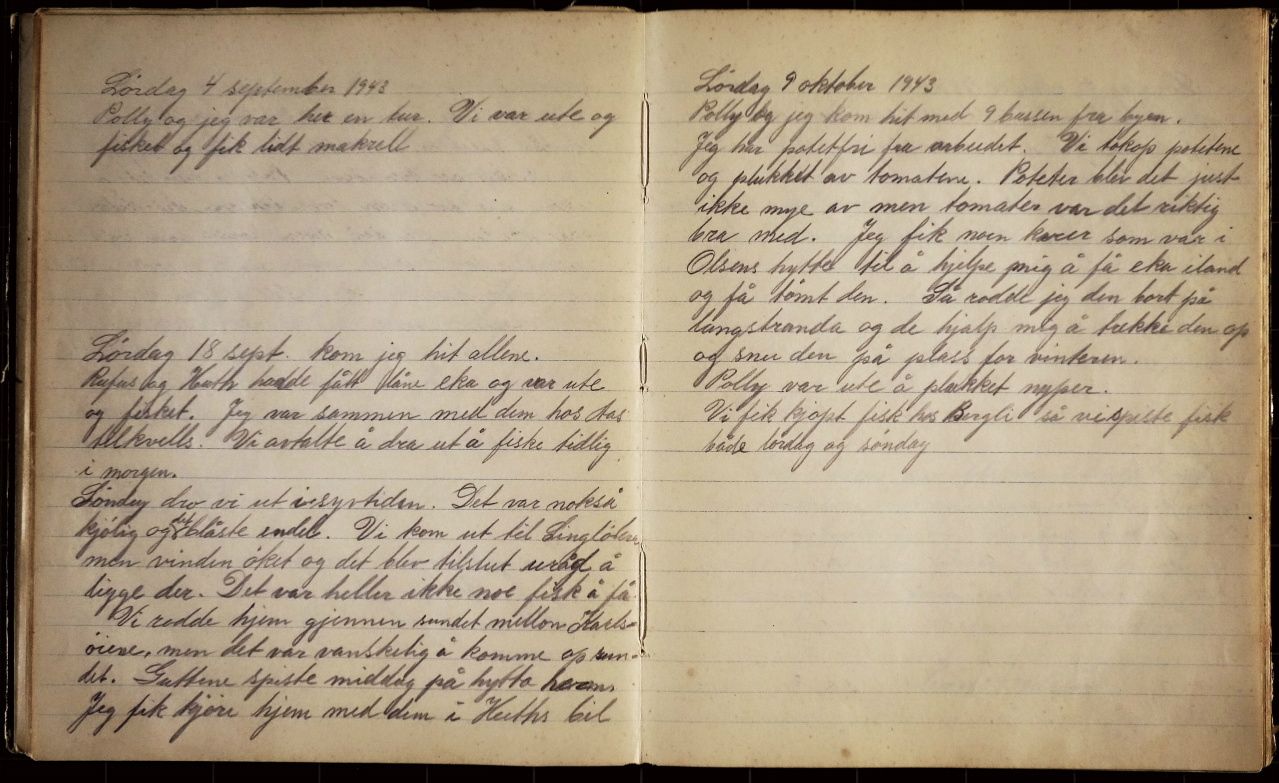 Lördag 4 september 1943
Polly og jeg var her en tur. Vi var ute og
fisket og fik lidt makrell
Lördag 18 sept. kom jeg hit allene.
Rufus og Huth hadde fått låne eka og var ute
og fisket. Jeg var sammen med dem hos Aas
tilkvells. Vi avtalte å dra ut å fiske tidlig
i morgen.
Söndag dro vi ut i syvtiden. Det var nokså
kjölig og det blåste endel. Vi kom ut til
men vinden öket og det blev tilslut uråd å
ligge der. Det var heller ikke noe fisk å få.
Vi rodde hjem gjennen sundet mellon Karls-
öiene, men det var vanskelig å komme op sun-
det. Guttene spiste middag på hytta
Jeg fik kjöre hjem med dem i Huths bil
Lördag 9 oktober 1943
Polly og jeg kom hit med 9 bussen fra byen.
Jeg har potetfri fra arbeidet. Vi tok op potetene
og plukket av tomatene. Poteter blev det just
ikke mye av men tomater var det riktig
bra med. Jeg fik noen karer som var i
Olsens hytte til å hjelpe mig å få eka iland
og få tömt den. Så rodde jeg den bort på
langstranda og de hjalp mig å trekke den op
og snu den på plass for vinteren.
Polly var ute å plukket nyper.
Vi fik kjöpt fisk hos Bergli så vi spiste fisk
både lördag og söndag